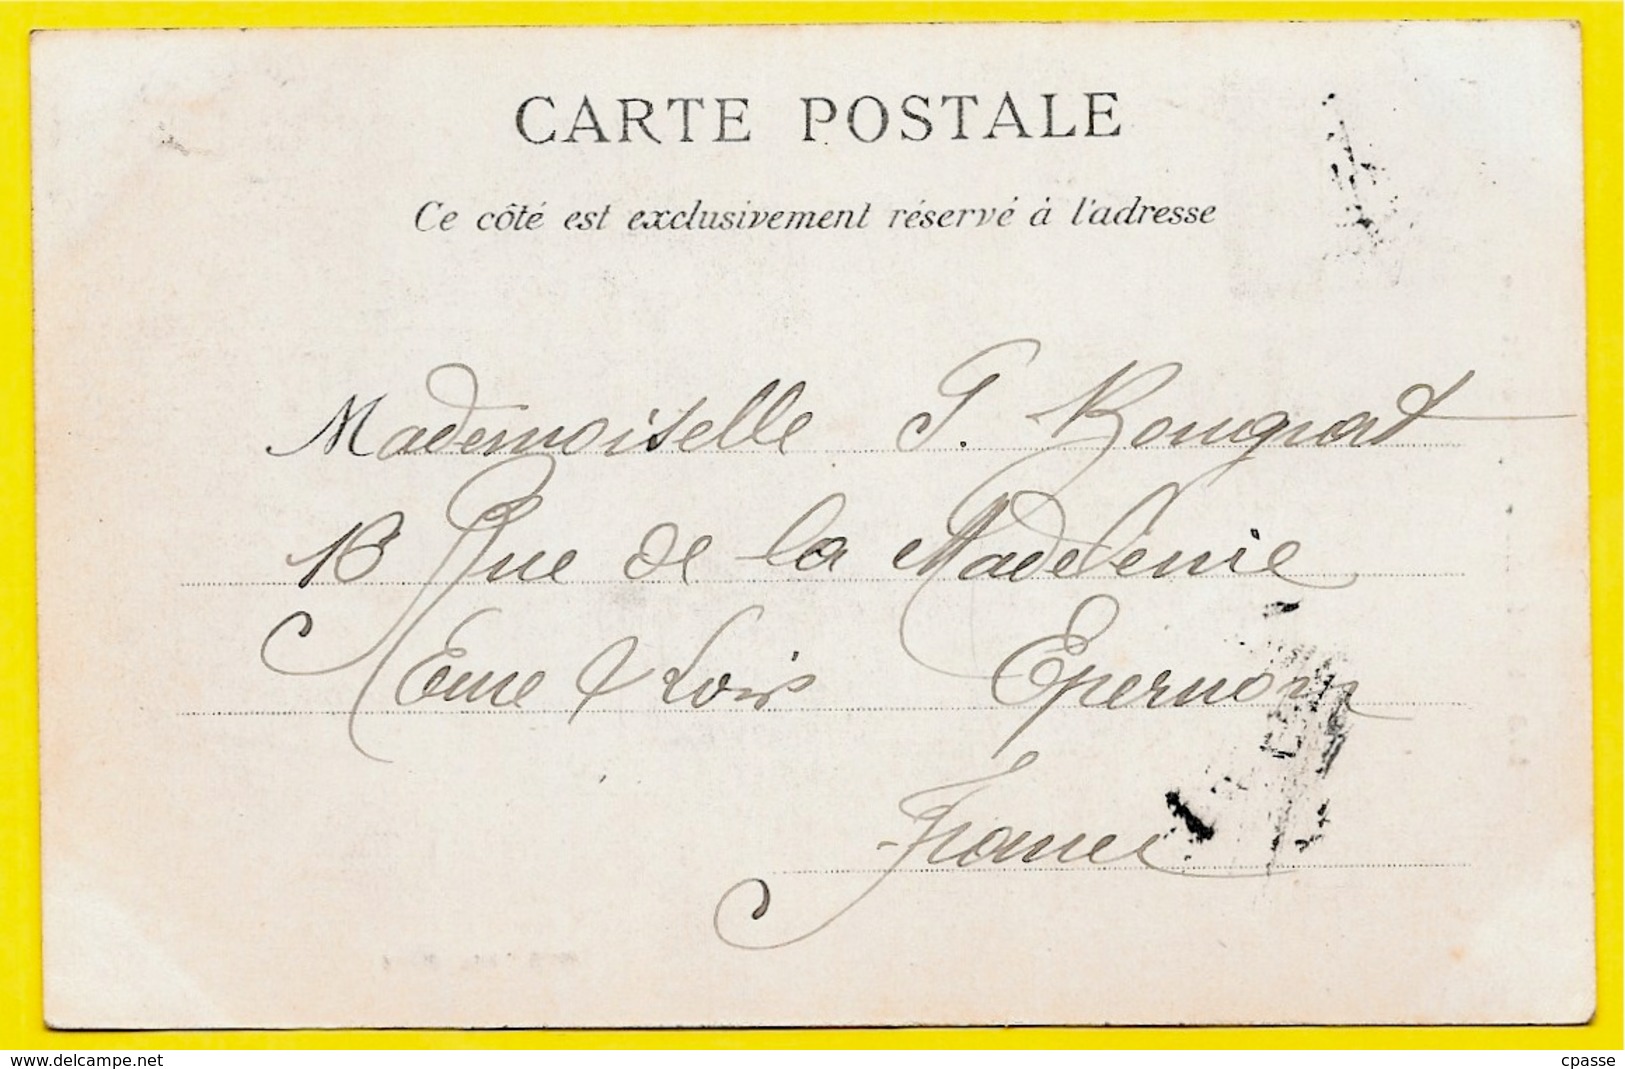 CARTE POSTALE
Ce côté est exclusivement réservé à l'adresse
Mademoiselle G. Rougnat
13 Rue de la Madelenie
Eure & Loir Epernon
France
www.delcampe.net cpasse